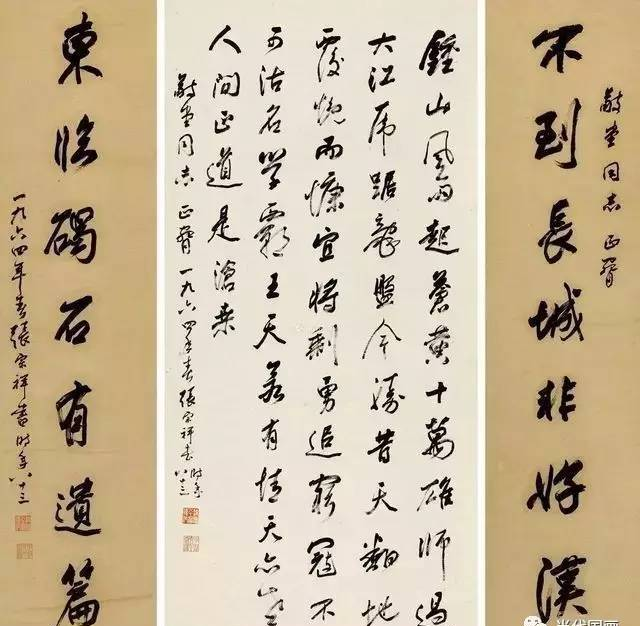 不到長城非好漢
同志正
鍾山風雨起蒼黃十萬雄師過
大江虎踞龍盤今勝昔天翻地
覆慨而慷宜將剩勇追窮寇不
可沽名學霸王天若有情天亦老
人間正道是滄桑
同志正 一九六四年春張宗祥書時年
八十三
東臨碣石有遺篇
一九六四年春張宗祥書時年八十三
当代国画